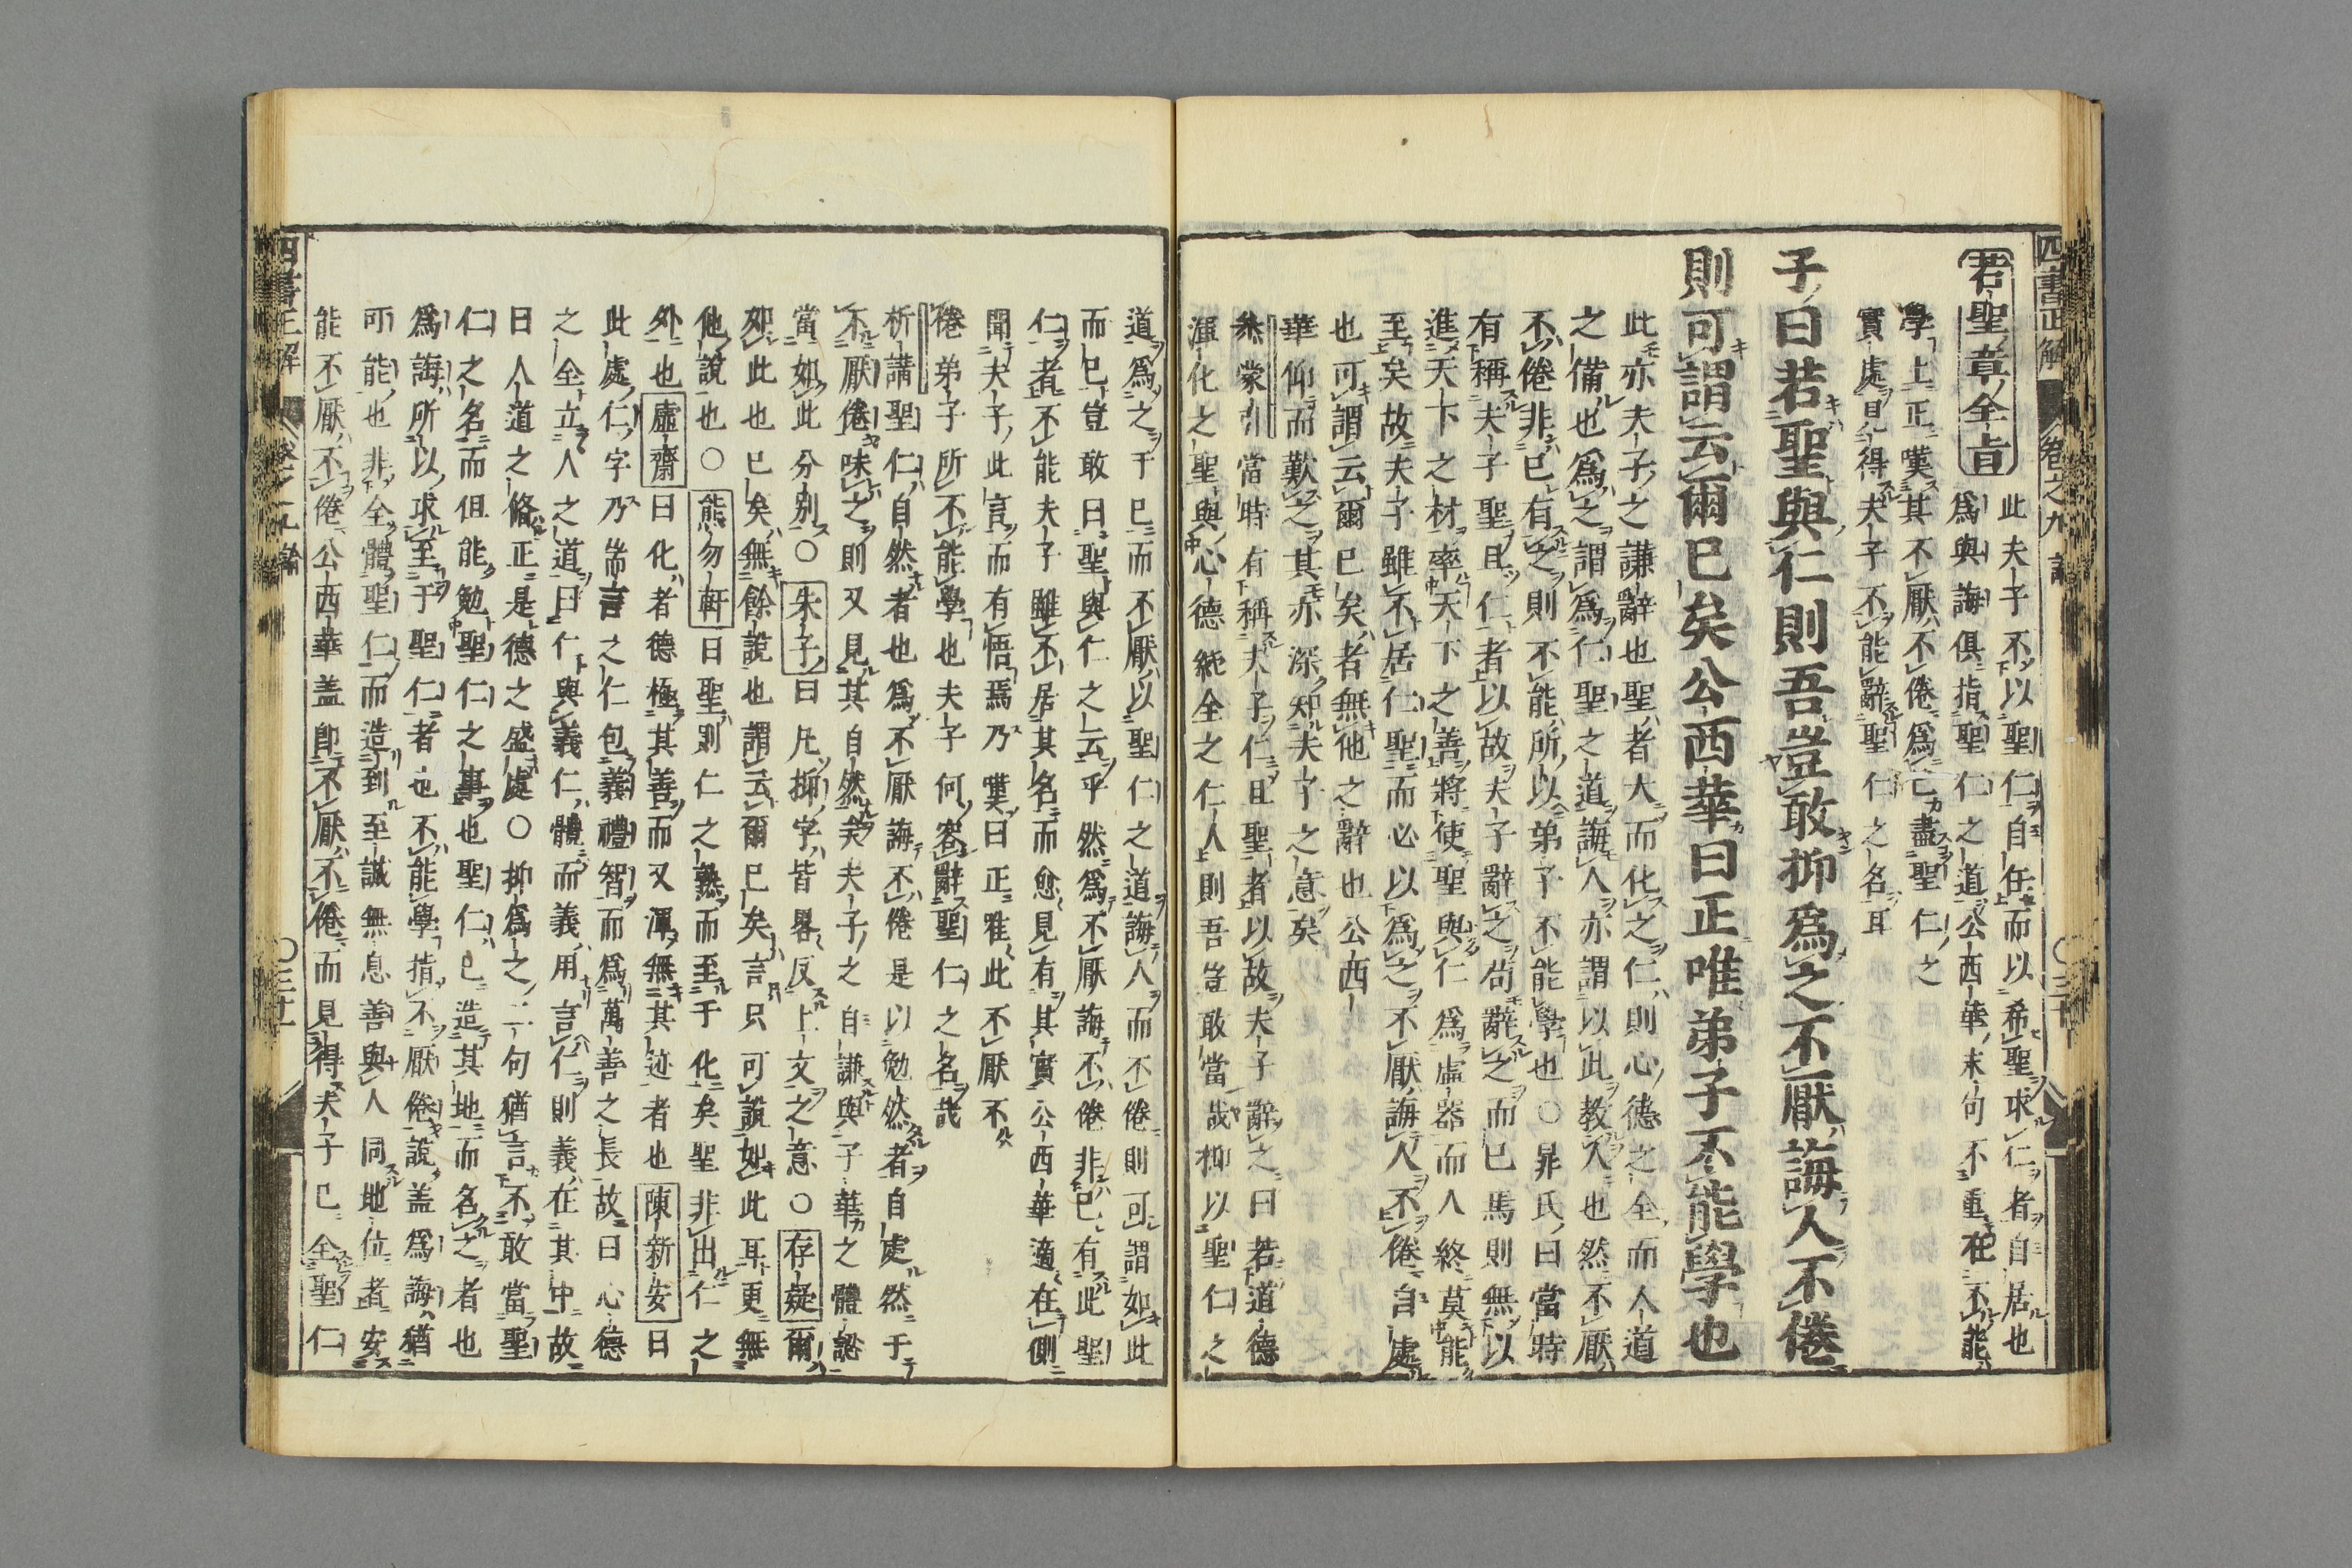 四書正解 卷之九 論 〇三十
若聖章全旨
此夫子不以聖仁自任而以希聖求仁者自居也
爲與誨俱指聖仁之道公西華末句不重在不能
學上正嘆其不厭不倦爲已盡聖仁之
實處見得夫子不能辭聖仁之名耳
子曰若聖與仁則吾豈敢抑爲之不厭誨人不倦
則可謂云爾已矣公西華曰正唯弟子不能學也
此亦夫子之謙辭也聖者大而化之仁則心德之全而人道
之備也爲之謂爲仁聖之道誨人亦謂以此教人也然不厭
不倦非已有之則不能所以弟子不能學也〇鼂氏曰當時
有稱夫子聖且仁者以故夫子辭之苟辭之而已焉則無以
進天下之材率天下之善將使聖與仁爲虛器而人終莫能
至矣故夫子雖不居仁聖而必以爲之不厭誨人不倦自處
也可謂云爾已矣者無他之辭也公西
華仰而歎之其亦深知夫子之意矣
叅蒙引當時有稱夫子仁且聖者以故夫子辭之曰若道德
渾化之聖與心德純全之仁人則吾豈敢當哉抑以聖仁之
道爲之于已而不厭以聖仁之道誨人而不倦則可謂如此
而已豈敢曰聖與仁之云乎然爲不厭誨不倦非已有此聖
仁者不能夫子雖不居其名而愈見有其實公西華適在側
聞夫子此言而有悟焉乃嘆曰正唯此不厭不
倦弟子所不能學也夫子何容辭聖仁之名哉
析講聖仁自然者也爲不厭誨不倦是以勉然者自處然于
不厭倦味之則又見其自然矣夫子之自謙與子華之體認
當如此分別〇朱子曰凡抑字皆畧反上文之意〇存疑爾
如此也已矣無餘說也謂云爾已矣言只可說如此耳更無
他說也〇熊勿軒曰聖則仁之熟而至于化矣聖非出仁之
外也虛齋曰化者德極其善而又渾無其迹者也陳新安曰
此處仁字乃耑言之仁包義禮智而爲萬善之長故曰心德
之全立人之道曰仁與義仁體而義用言仁則義在其中故
曰人道之備正是德之盛處〇抑爲之二句猶言不敢當聖
仁之名而但能勉聖仁之事也聖仁已造其地而名之者也
爲誨所以求至于聖仁者也不能學指不厭倦說蓋爲誨猶
可能也非全體聖仁而造到至誠無息善與人同地位者安
能不厭不倦公西華盖卽不厭不倦而見得夫子已全聖仁
四書正解